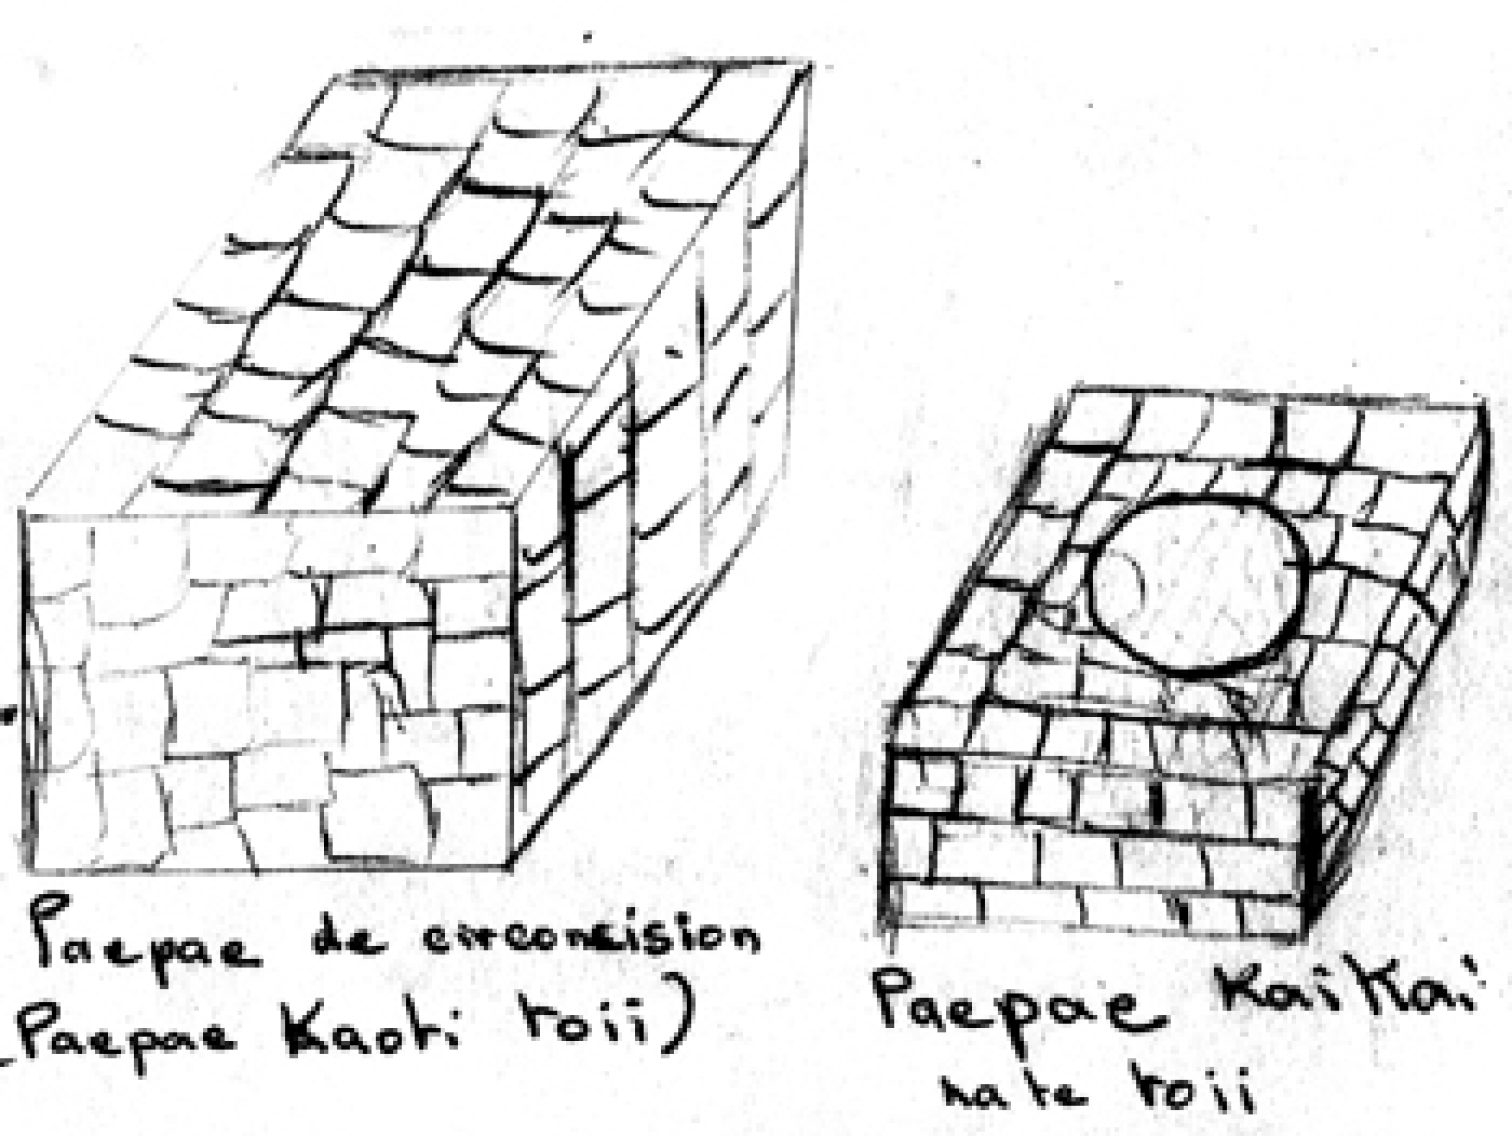 Paepae de circoncision
(Paepae Kaoti toii)
Paepae KaiKai
na te toii